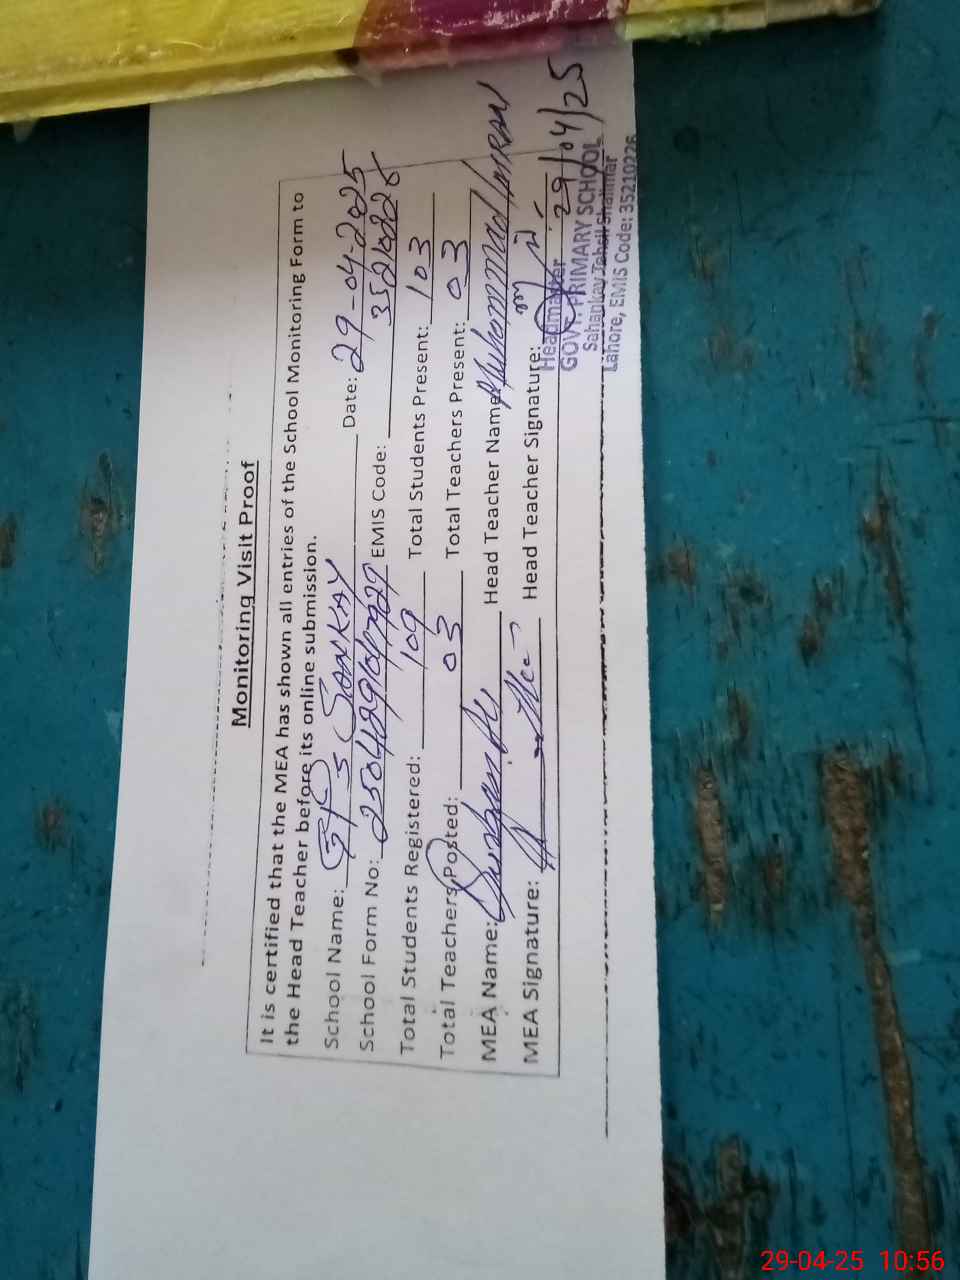 Monitoring Visit Proof
It is certified that the MEA has shown all entries of the School Monitoring Form to
the Head Teacher before its online submission.
School Name: GPS SANKAY Date: 29-04-2025
School Form No: EMIS Code: 35210226
Total Students Registered: 109 Total Students Present: 103
Total Teachers Posted: 03 Total Teachers Present: 03
MEA Name: Head Teacher Name: Muhammad IMRAN
MEA Signature: Head Teacher Signature:
29/04/25
Headmaster
GOVT. PRIMARY SCHOOL
Sahankay Tehsil Shalimar
Lahore, EMIS Code: 35210226
29-04-25 10:56